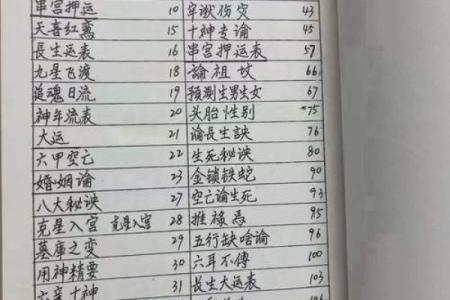 串宫押运 10 牢狱伤灾 43
天喜红鸾 15 十神专论 45
長生运表 16 串宫押运表 57
九星飞渡 18 論祖坟 66
追魂日流 19 預测生男生女 67
神年流表 20 头胎性别 75
大运 21 論長生訣 76
六甲空亡 22 生死秘诀 80
婚姻論 23 金锁铁蛇 90
八大秘诀 27 空亡論生死 93
克星入宫 克星入宫 28 推禄忌 95
墓庫之变 29 五行缺啥論 96
用神精要 30 六耳不傳 100
六亲十神 31 長生大运表 103